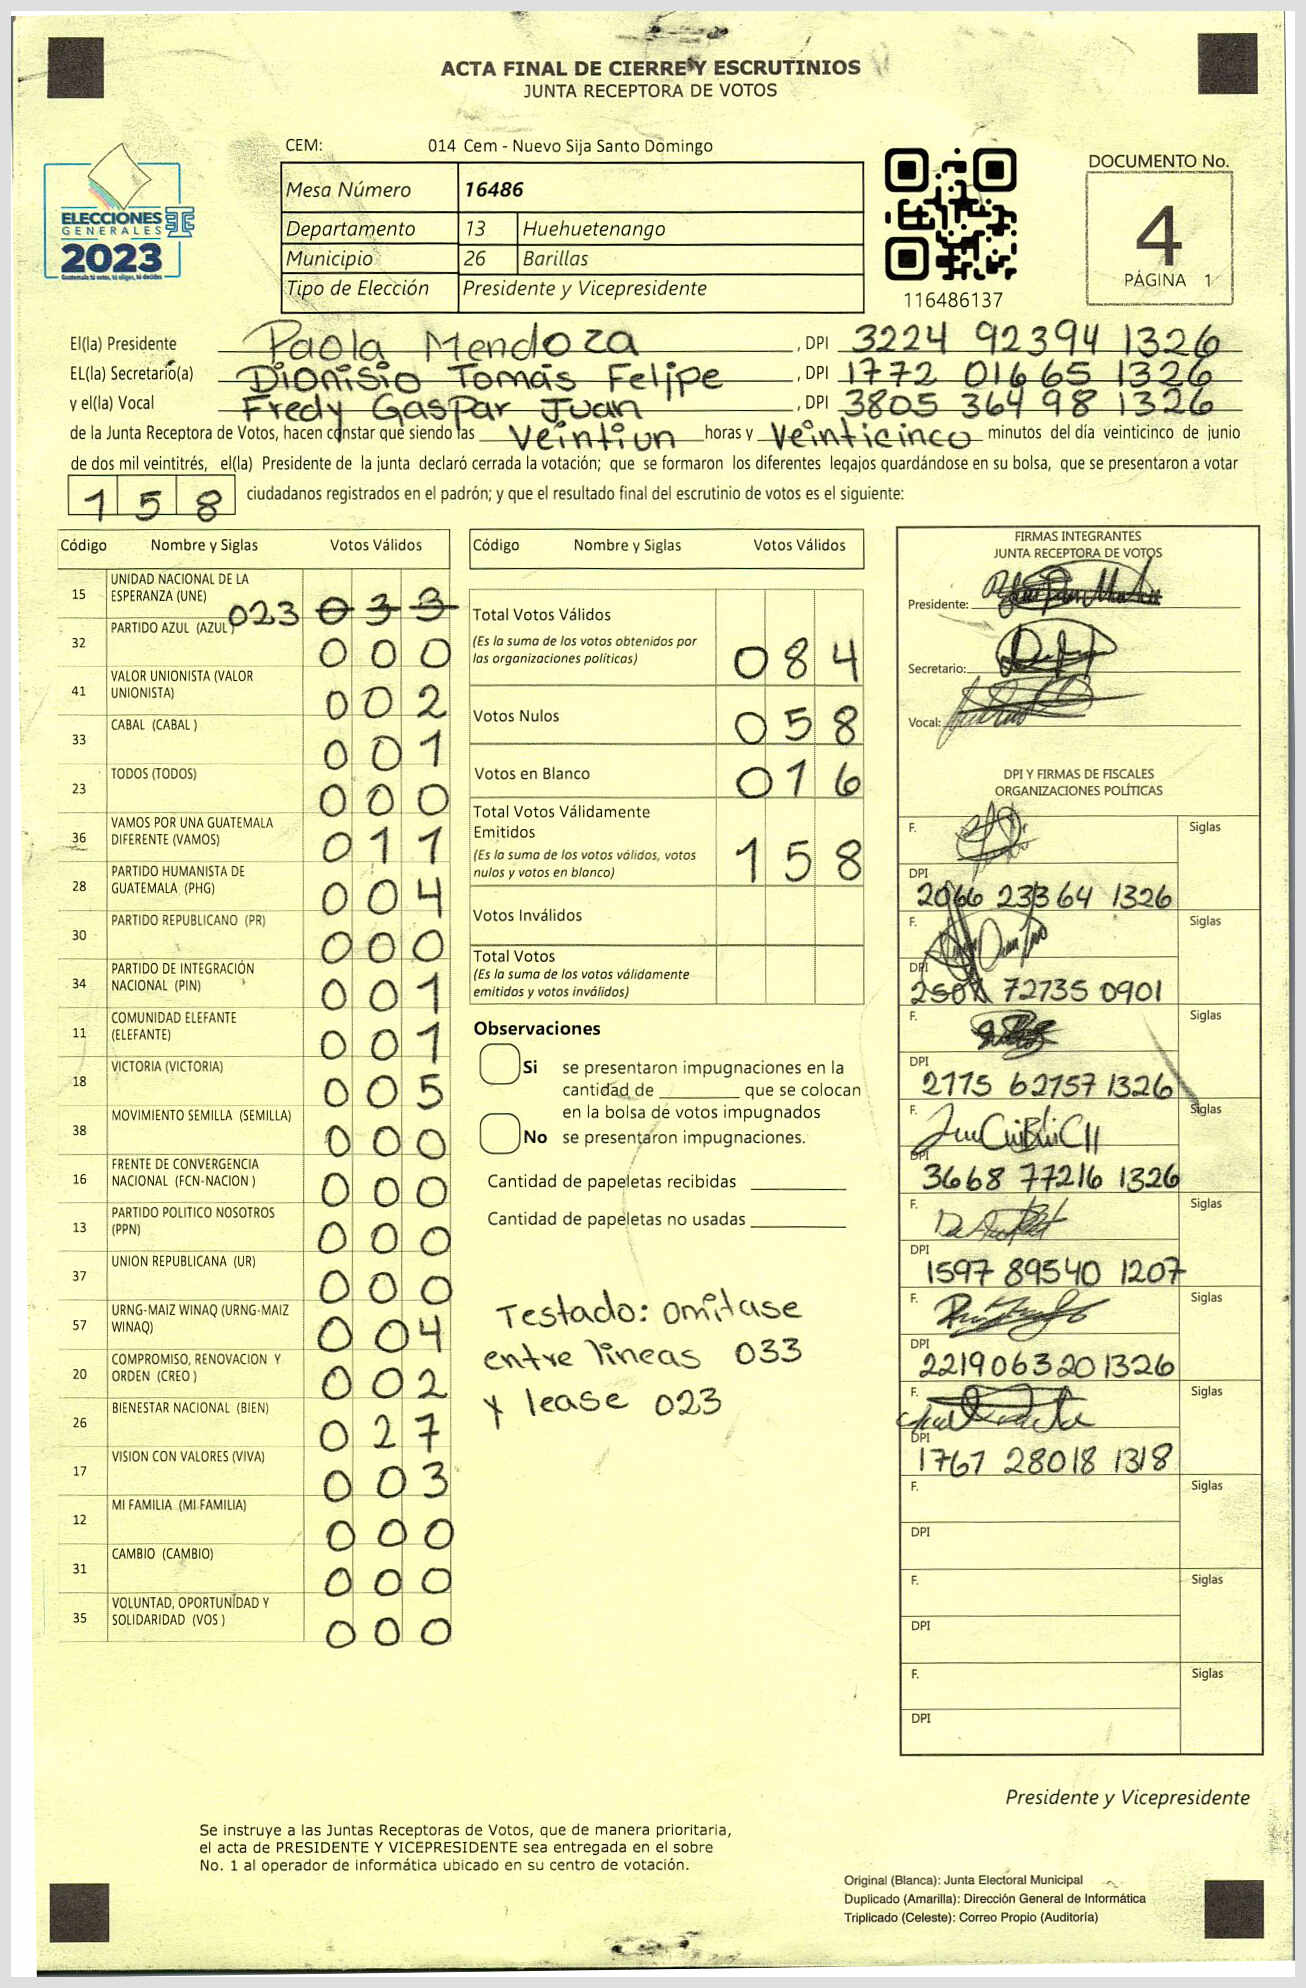 ACTA FINAL DE CIERRE Y ESCRUTINIOS
JUNTA RECEPTORA DE VOTOS
CEM: 014 Cem - Nuevo Sija Santo Domingo
ELECCIONES
GENERALES
2023
Guatemala tú votas, tú eliges, tú decides
Mesa Número 16486
Departamento 13 Huehuetenango
Municipio 26 Barillas
Tipo de Elección Presidente y Vicepresidente
116486137
DOCUMENTO No.
4
PÁGINA 1
El(la) Presidente Paola Mendoza, DPI 3224 92394 1326
EL(la) Secretario(a) Dionisio Tomás Felipe, DPI 1772 01665 1326
y el(la) Vocal Fredy Gaspar Juan, DPI 3805 36498 1326
de la Junta Receptora de Votos, hacen constar que siendo las Veintiun horas y Veinticinco minutos del día veinticinco de junio
de dos mil veintitrés, el(la) Presidente de la junta declaró cerrada la votación; que se formaron los diferentes legajos quardándose en su bolsa, que se presentaron a votar
158 ciudadanos registrados en el padrón; y que el resultado final del escrutinio de votos es el siguiente:
Código Nombre y Siglas Votos Válidos
15 UNIDAD NACIONAL DE LA
ESPERANZA (UNE) 023 033
32 PARTIDO AZUL (AZUL ) 000
41 VALOR UNIONISTA (VALOR
UNIONISTA) 002
33 CABAL (CABAL ) 001
23 TODOS (TODOS) 000
36 VAMOS POR UNA GUATEMALA
DIFERENTE (VAMOS) 011
28 PARTIDO HUMANISTA DE
GUATEMALA (PHG) 004
30 PARTIDO REPUBLICANO (PR) 000
34 PARTIDO DE INTEGRACIÓN
NACIONAL (PIN) 001
11 COMUNIDAD ELEFANTE
(ELEFANTE) 001
18 VICTORIA (VICTORIA) 005
38 MOVIMIENTO SEMILLA (SEMILLA) 000
16 FRENTE DE CONVERGENCIA
NACIONAL (FCN-NACION ) 000
13 PARTIDO POLITICO NOSOTROS
(PPN) 000
37 UNION REPUBLICANA (UR) 000
57 URNG-MAIZ WINAQ (URNG-MAIZ
WINAQ) 004
20 COMPROMISO, RENOVACION Y
ORDEN (CREO ) 002
26 BIENESTAR NACIONAL (BIEN) 027
17 VISION CON VALORES (VIVA) 003
12 MI FAMILIA (MI FAMILIA) 000
31 CAMBIO (CAMBIO) 000
35 VOLUNTAD, OPORTUNIDAD Y
SOLIDARIDAD (VOS ) 000
Código Nombre y Siglas Votos Válidos
Total Votos Válidos
(Es la suma de los votos obtenidos por
las organizaciones políticas) 084
Votos Nulos 058
Votos en Blanco 016
Total Votos Válidamente
Emitidos
(Es la suma de los votos válidos, votos
nulos y votos en blanco) 158
Votos Inválidos
Total Votos
(Es la suma de los votos válidamente
emitidos y votos inválidos)
Observaciones
Si se presentaron impugnaciones en la
cantidad de ________ que se colocan
en la bolsa de votos impugnados
No se presentaron impugnaciones.
Cantidad de papeletas recibidas
Cantidad de papeletas no usadas
Testado: omitase
entre lineas 033
y lease 023
FIRMAS INTEGRANTES
JUNTA RECEPTORA DE VOTOS
Presidente:
Secretario:
Vocal:
DPI Y FIRMAS DE FISCALES
ORGANIZACIONES POLÍTICAS
F. Siglas
DPI
2066 23364 1326
F. Siglas
DPI
72735 0901
F. Siglas
DPI
2775 62757 1326
F. Siglas
DPI
3668 77216 1326
F. Siglas
DPI
1597 89540 1207
F. Siglas
DPI
2219063201326
F. Siglas
DPI
1767 28018 1318
F. Siglas
DPI
F. Siglas
DPI
F. Siglas
DPI
Presidente y Vicepresidente
Se instruye a las Juntas Receptoras de Votos, que de manera prioritaria,
el acta de PRESIDENTE Y VICEPRESIDENTE sea entregada en el sobre
No. 1 al operador de informática ubicado en su centro de votación.
Original (Blanca): Junta Electoral Municipal
Duplicado (Amarilla): Dirección General de Informática
Triplicado (Celeste): Correo Propio (Auditoría)